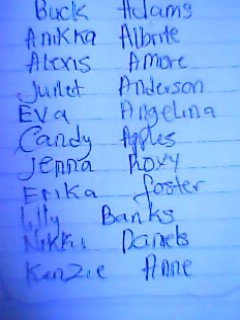 Buck Adams
Anikka Albrite
Alexis Amore
Juliet Anderson
Eva Angelina
Candy Apples
Jenna Roxy
Erika foster
Lily Banks
Nikki Daniels
Kenzie Anne